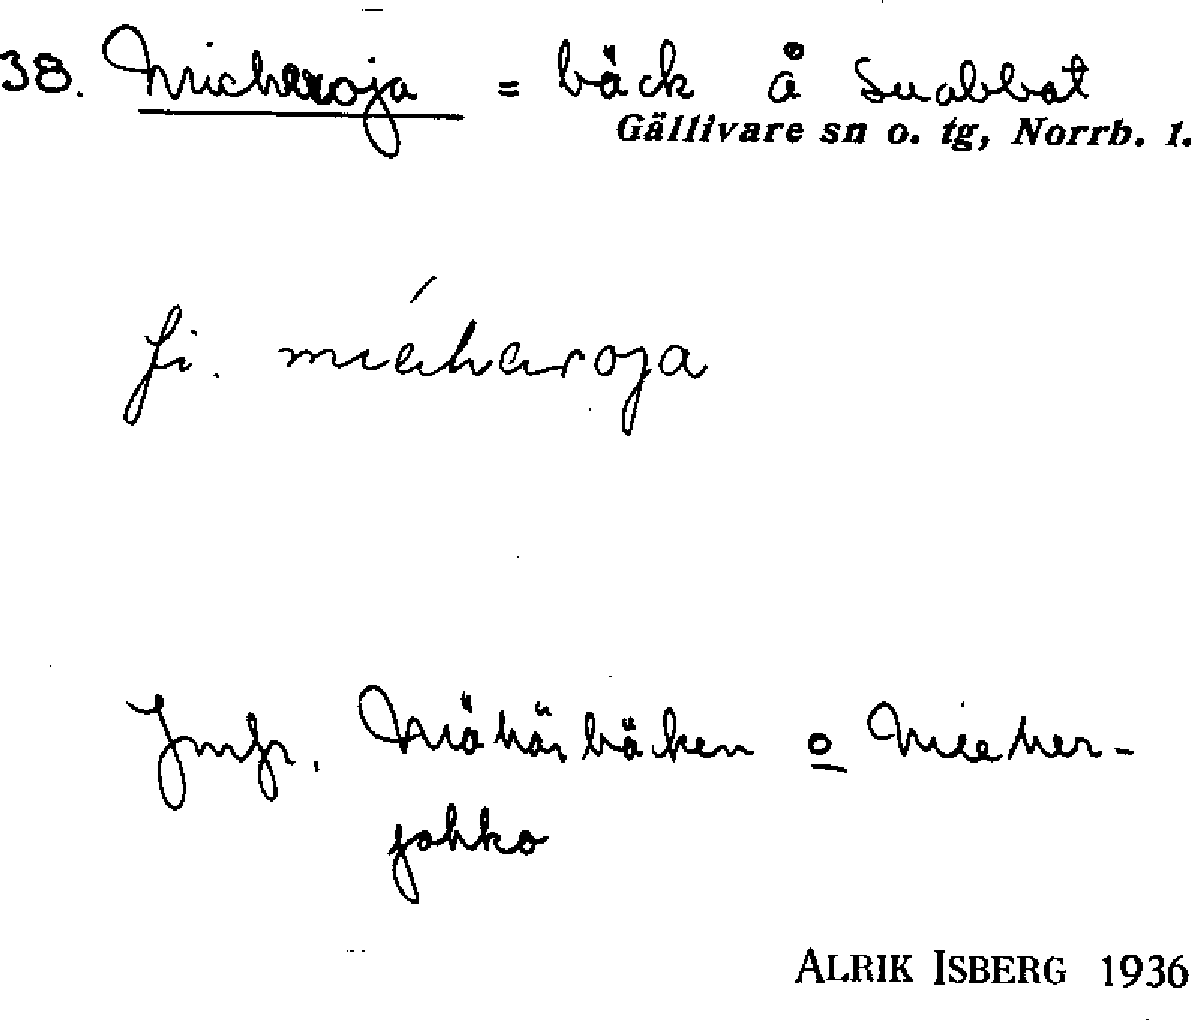 38. Mieheroja = bäck å Suabbat
Gällivare sn o. tg, Norrb. l.
fi. mieheroja
Jmfr. Mähärbäcken o Mieher-
johko
ALRIK ISBERG 1936